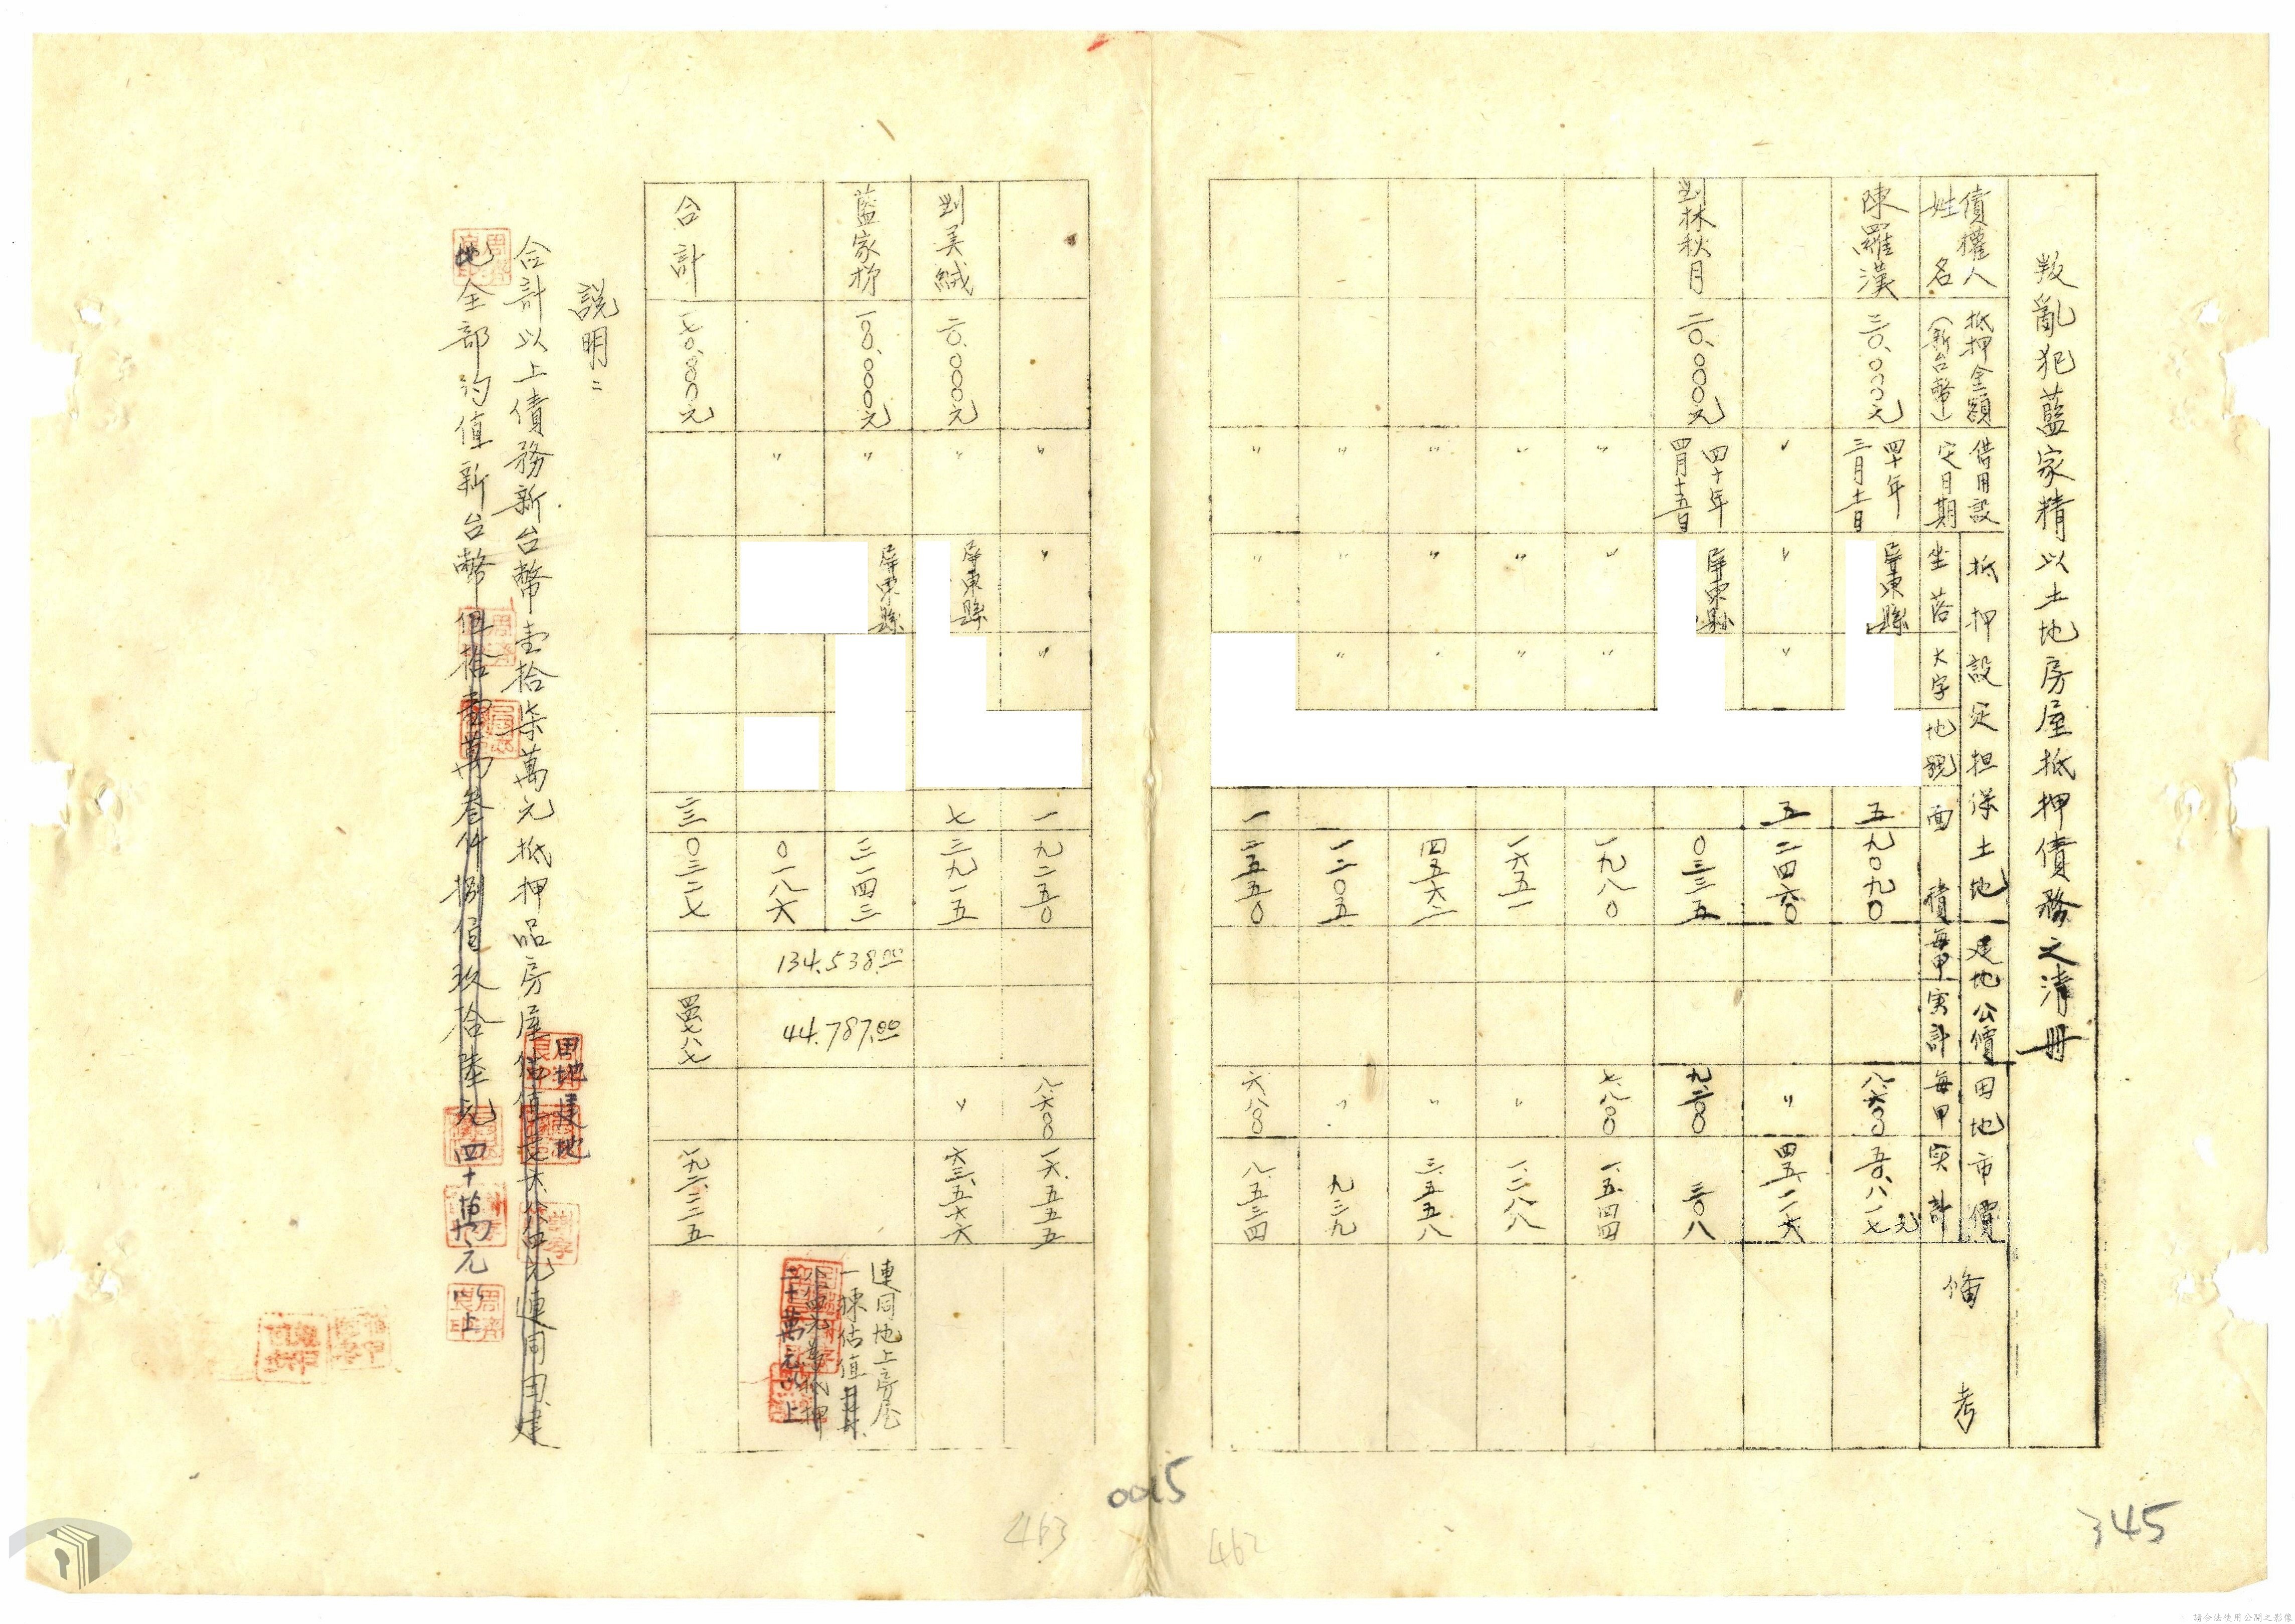 叛亂犯藍家精以土地房屋抵押債務之清冊
債權人姓名
抵押金額（新台幣）
借用設定日期
抵押設定担保土地
坐落
大字
地號
面積
建地公價
每甲
實計
田地市價
每甲
實計
備考
陳羅漢
三〇.〇〇〇元
四十年三月十二日
屏東縣
五
九〇九〇
八.六〇〇
五〇.八一七元
〃
〃
〃
五
二四六〇
〃
四五.一一六
劉林秋月
二〇.〇〇〇元
四十年四月十五日
屏東縣
〇三三五
九.二〇〇
三〇八
〃
〃
〃
一九八〇
七.八〇〇
一.五四四
〃
〃
〃
一六五一
〃
一.二八八
〃
〃
〃
四五六二
〃
三.五五八
〃
〃
〃
一二〇五
〃
九三九
〃
〃
一
二五五〇
六.八〇〇
八.五三四
〃
〃
〃
一
九二五〇
八.六〇〇
一六.五五五
劉美絨
二〇.〇〇〇元
〃
屏東縣
七
三九一五
〃
六三.五六六
藍家梯
一〇〇.〇〇〇元
〃
屏東縣
三一四三
134.538.00
44.787.00
連同地上房屋
一棟估值
二十萬元以上
〃
〇一八六
合計
一七〇.〇〇〇元
二三
〇三二七
四四七八七
一九二.二二五
說明：
合計以上債務新台幣壹拾柒萬元抵押品房屋
田地建地
連同田建
地全部約值新台幣伍拾壹萬叁仟捌佰玖拾陸元四十萬元以上
0015
463
462
345
請合法使用公開之影像